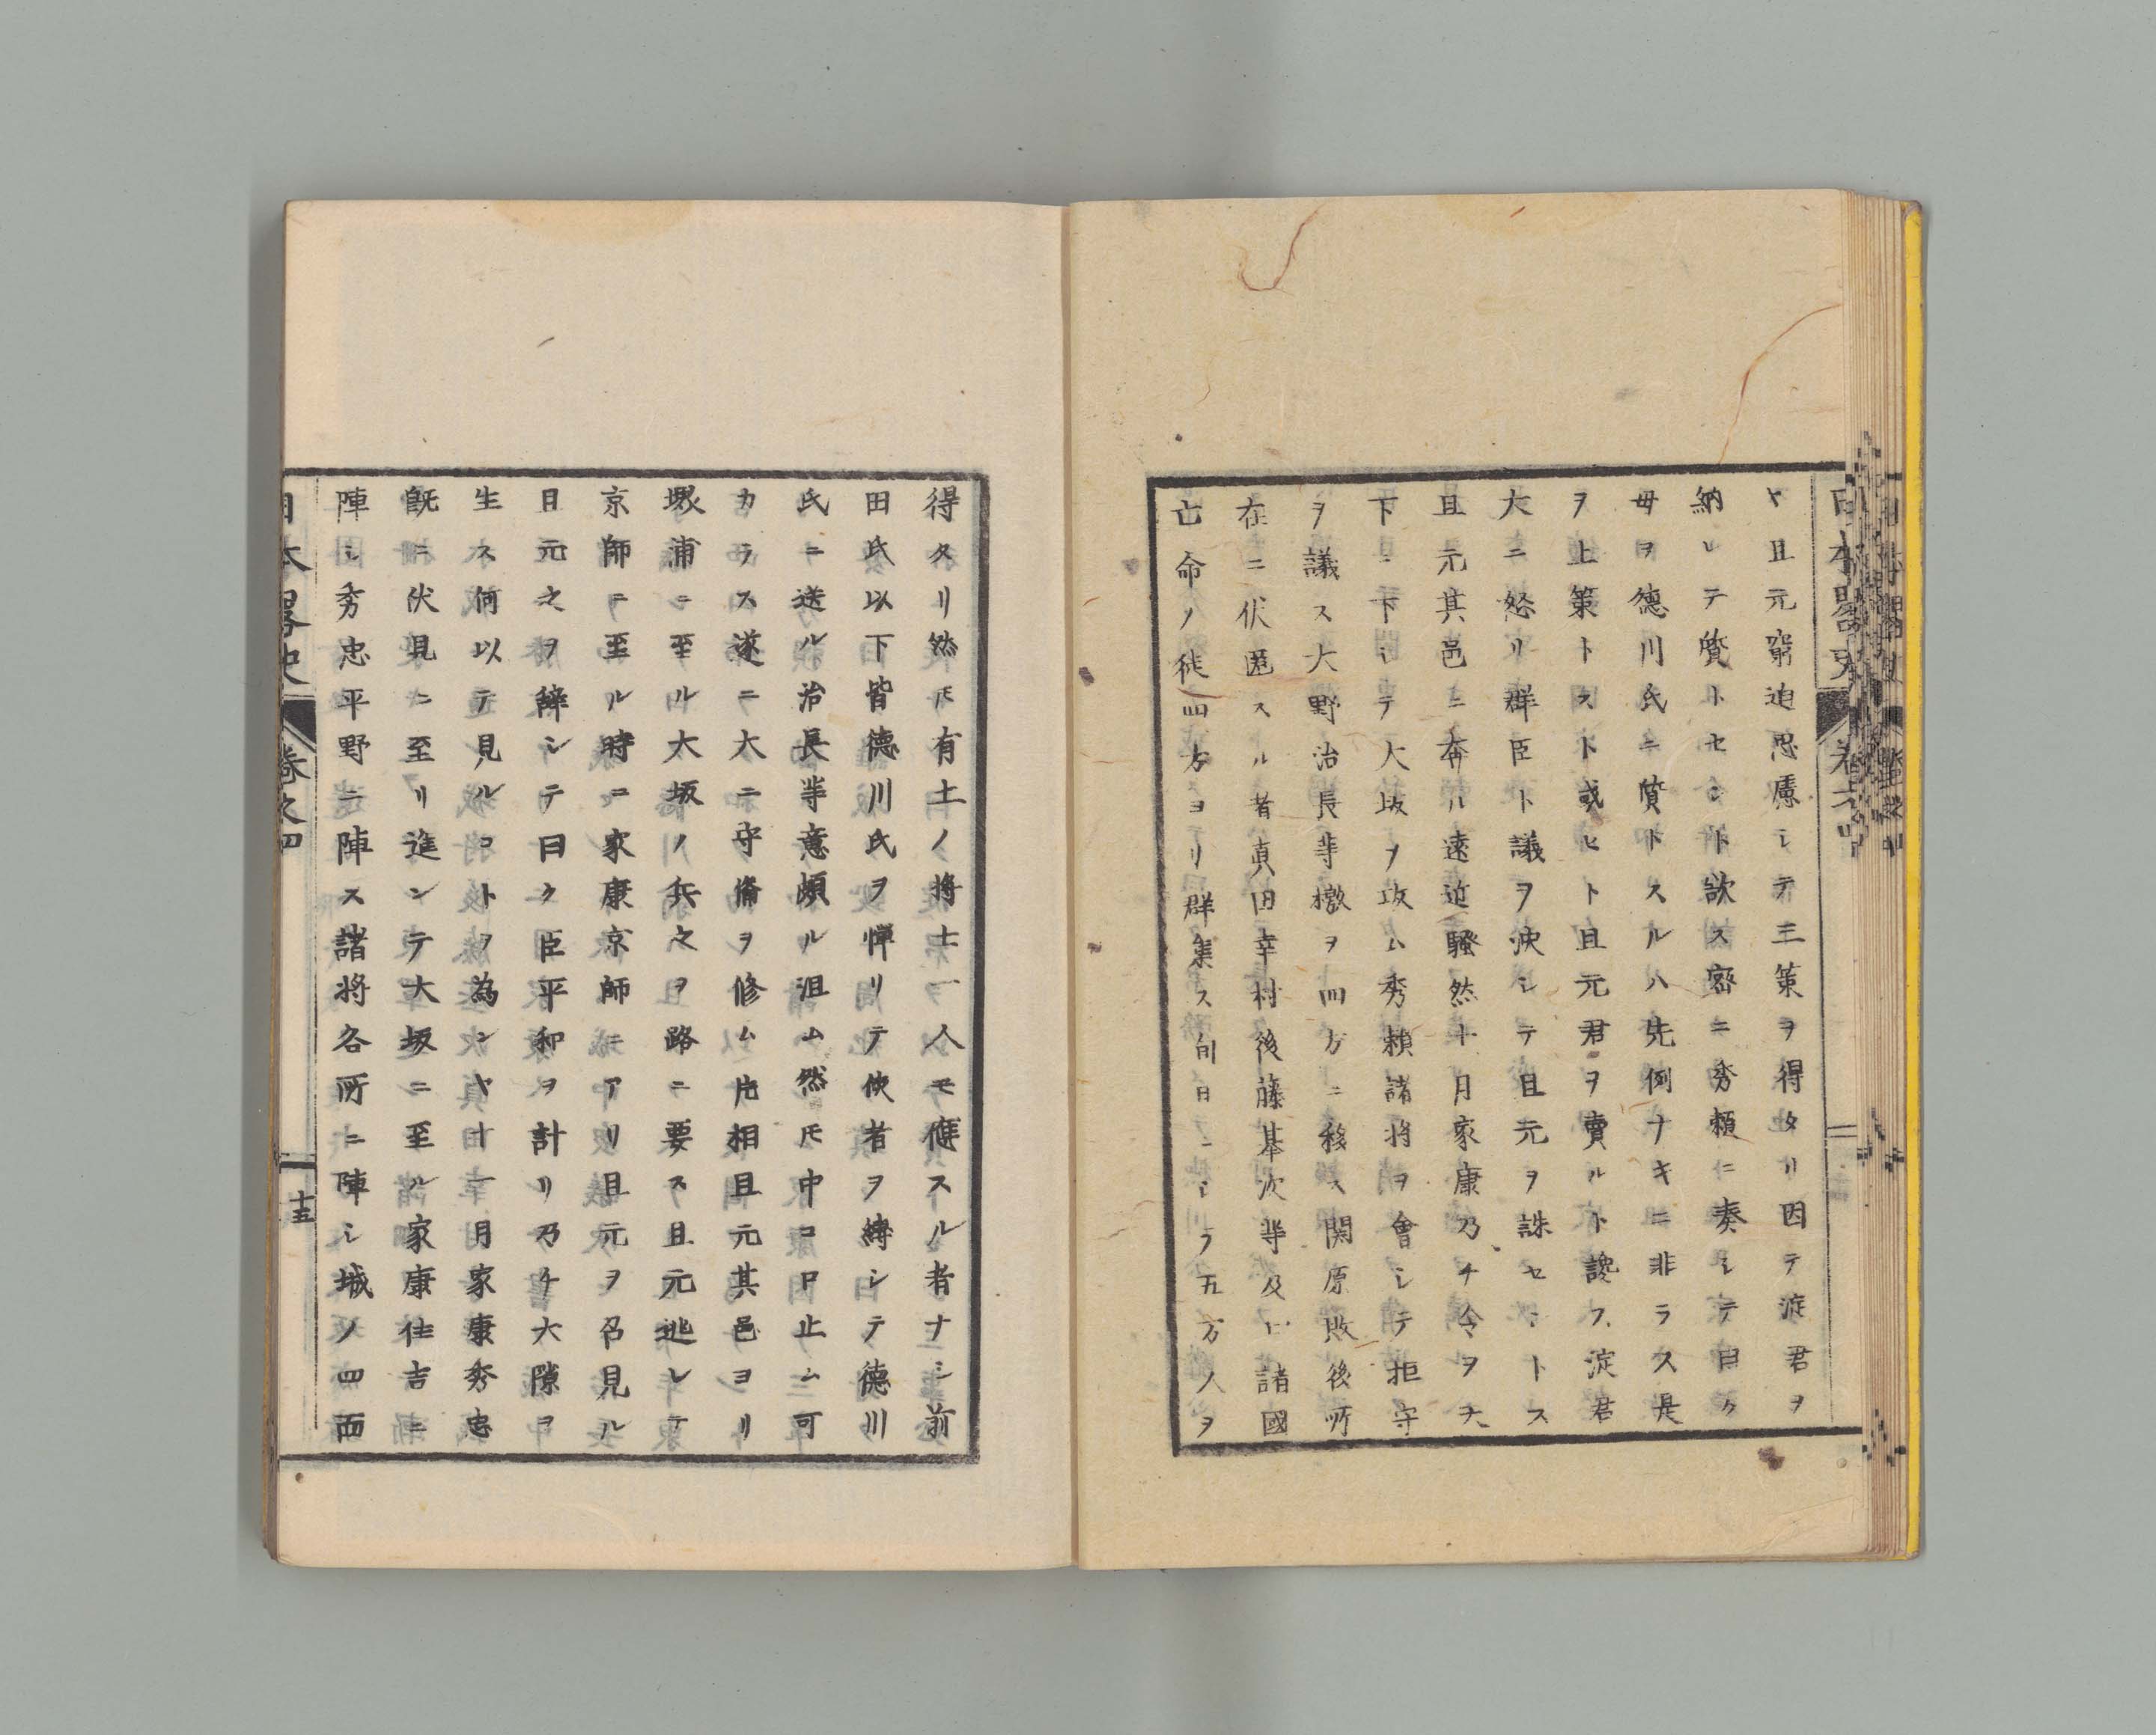 ヤ且元窮迫思慮シテ三策ヲ得タリ因テ淀君ヲ
納レテ質トセント欲ス密ニ秀頼ニ奏シテ曰ク
母ヲ德川氏ニ質トスルハ先例ナキニ非ラス是
ヲ上策トスト或ヒト且元君ヲ賣ルト讒ス淀君
大ニ怒リ群臣ト議ヲ決シテ且元ヲ誅セントス
且元其邑ニ奔ル遠近騷然十月家康乃チ令ヲ天
下ニ下シテ大坂ヲ攻ム秀賴諸将ヲ會シテ拒守
ヲ議ス大野治長等檄ヲ四方ニ移ス関原敗後所
在ニ伏匿スル者眞田幸村後藤基次等及ヒ諸國
亡命ノ徒四方ヨリ群集ス旬日ニシテ五万人ヲ
得タリ然ㇳモ有土ノ将士一人モ應スル者ナシ前
田氏以下皆德川氏ヲ憚リテ使者ヲ縛シテ德川
氏ニ送ル治長等意頗ル沮ム然ㇳモ中コロ止ム可
カラス遂ニ大ニ守備ヲ修ム片桐且元其邑ヨリ
堺浦ニ至ル大坂ノ兵之ヲ路ニ要ス且元逃レテ
京師ニ至ル時ニ家康京師ニアリ且元ヲ召見ル
且元之ヲ辭シテ曰ク臣平和ヲ計リ乃チ大隙ヲ
生ス何以テ見ルコトヲ為ンヤ十一月家康秀忠
既ニ伏見ニ至リ進ンテ大坂ニ至ル家康住吉ニ
陣シ秀忠平野ニ陣ス諸将各所ニ陣シ城ノ四面
日本畧史 卷之四 十五